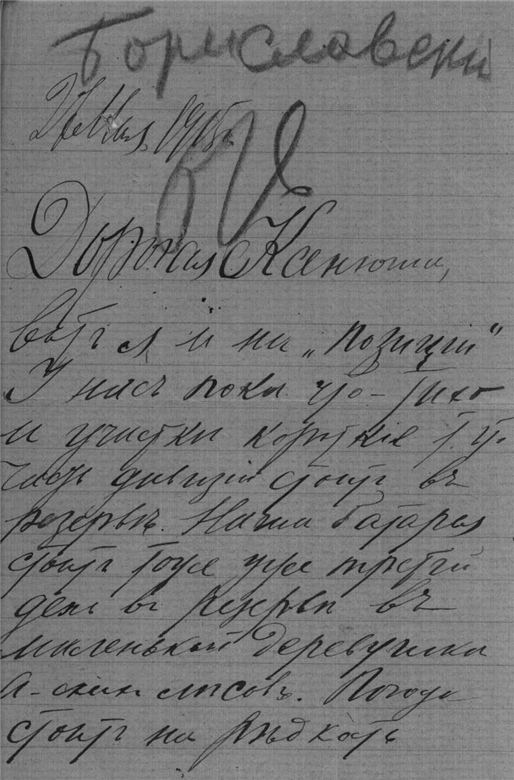 Бориславский
27 Мая 1915 г.
Дорогая Ксенюша,
Вотъ я и на „позиціи“
У насъ пока что-тихо
и участки короткіе т. ч.
часть дивизіи стоитъ въ
резервѣ. Наша батарея
стоитъ тоже уже третій
день въ резервѣ въ
маленькой деревушкѣ
лѣсовъ. Погода
стоитъ на рѣдкость